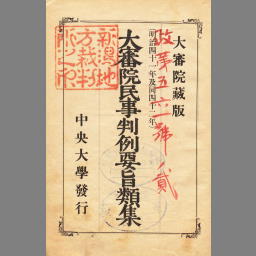 大審院藏版
(明治四十一年及同四十二年)
大審院民事判例要旨類集
中央大學發行
新潟地
方裁判